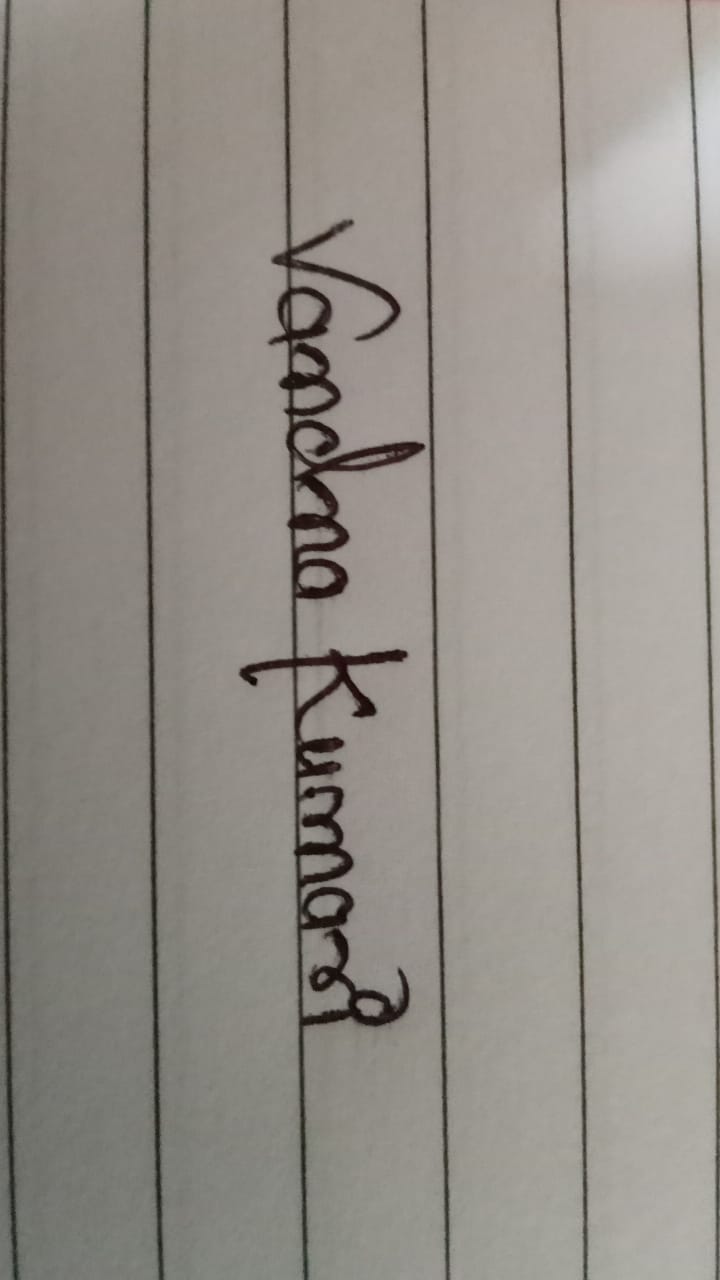 Vandna Kumari